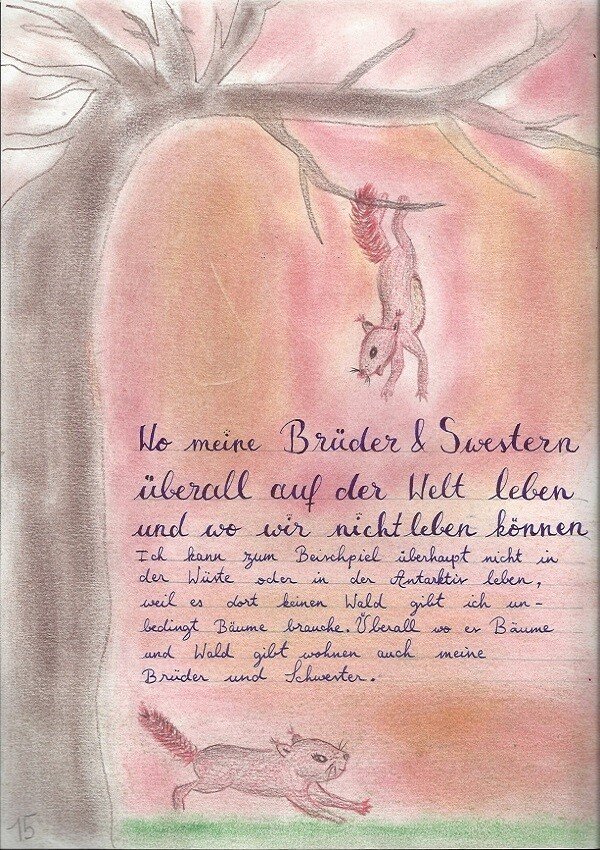 Wo meine Brüder & Swestern
überall auf der Welt leben
und wo wir nicht leben können
Ich kann zum Beischpiel überhaupt nicht in
der Wüste oder in der Antarktis leben,
weil es dort keinen Wald gibt ich un-
bedingt Bäume brauche. Überall wo es Bäume
und Wald gibt wohnen auch meine
Brüder und Schwester.
15